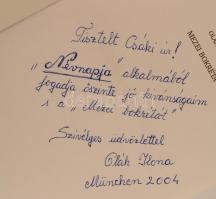 Tisztelt Csáki úr!
"Névnapja" alkalmából
fogadja őszinte jó kívánságaim
s a "Mezei bokrétát"
Szívélyes üdvözlettel
Oláh Ilona
München 2004
MEZEI BOKRÉT